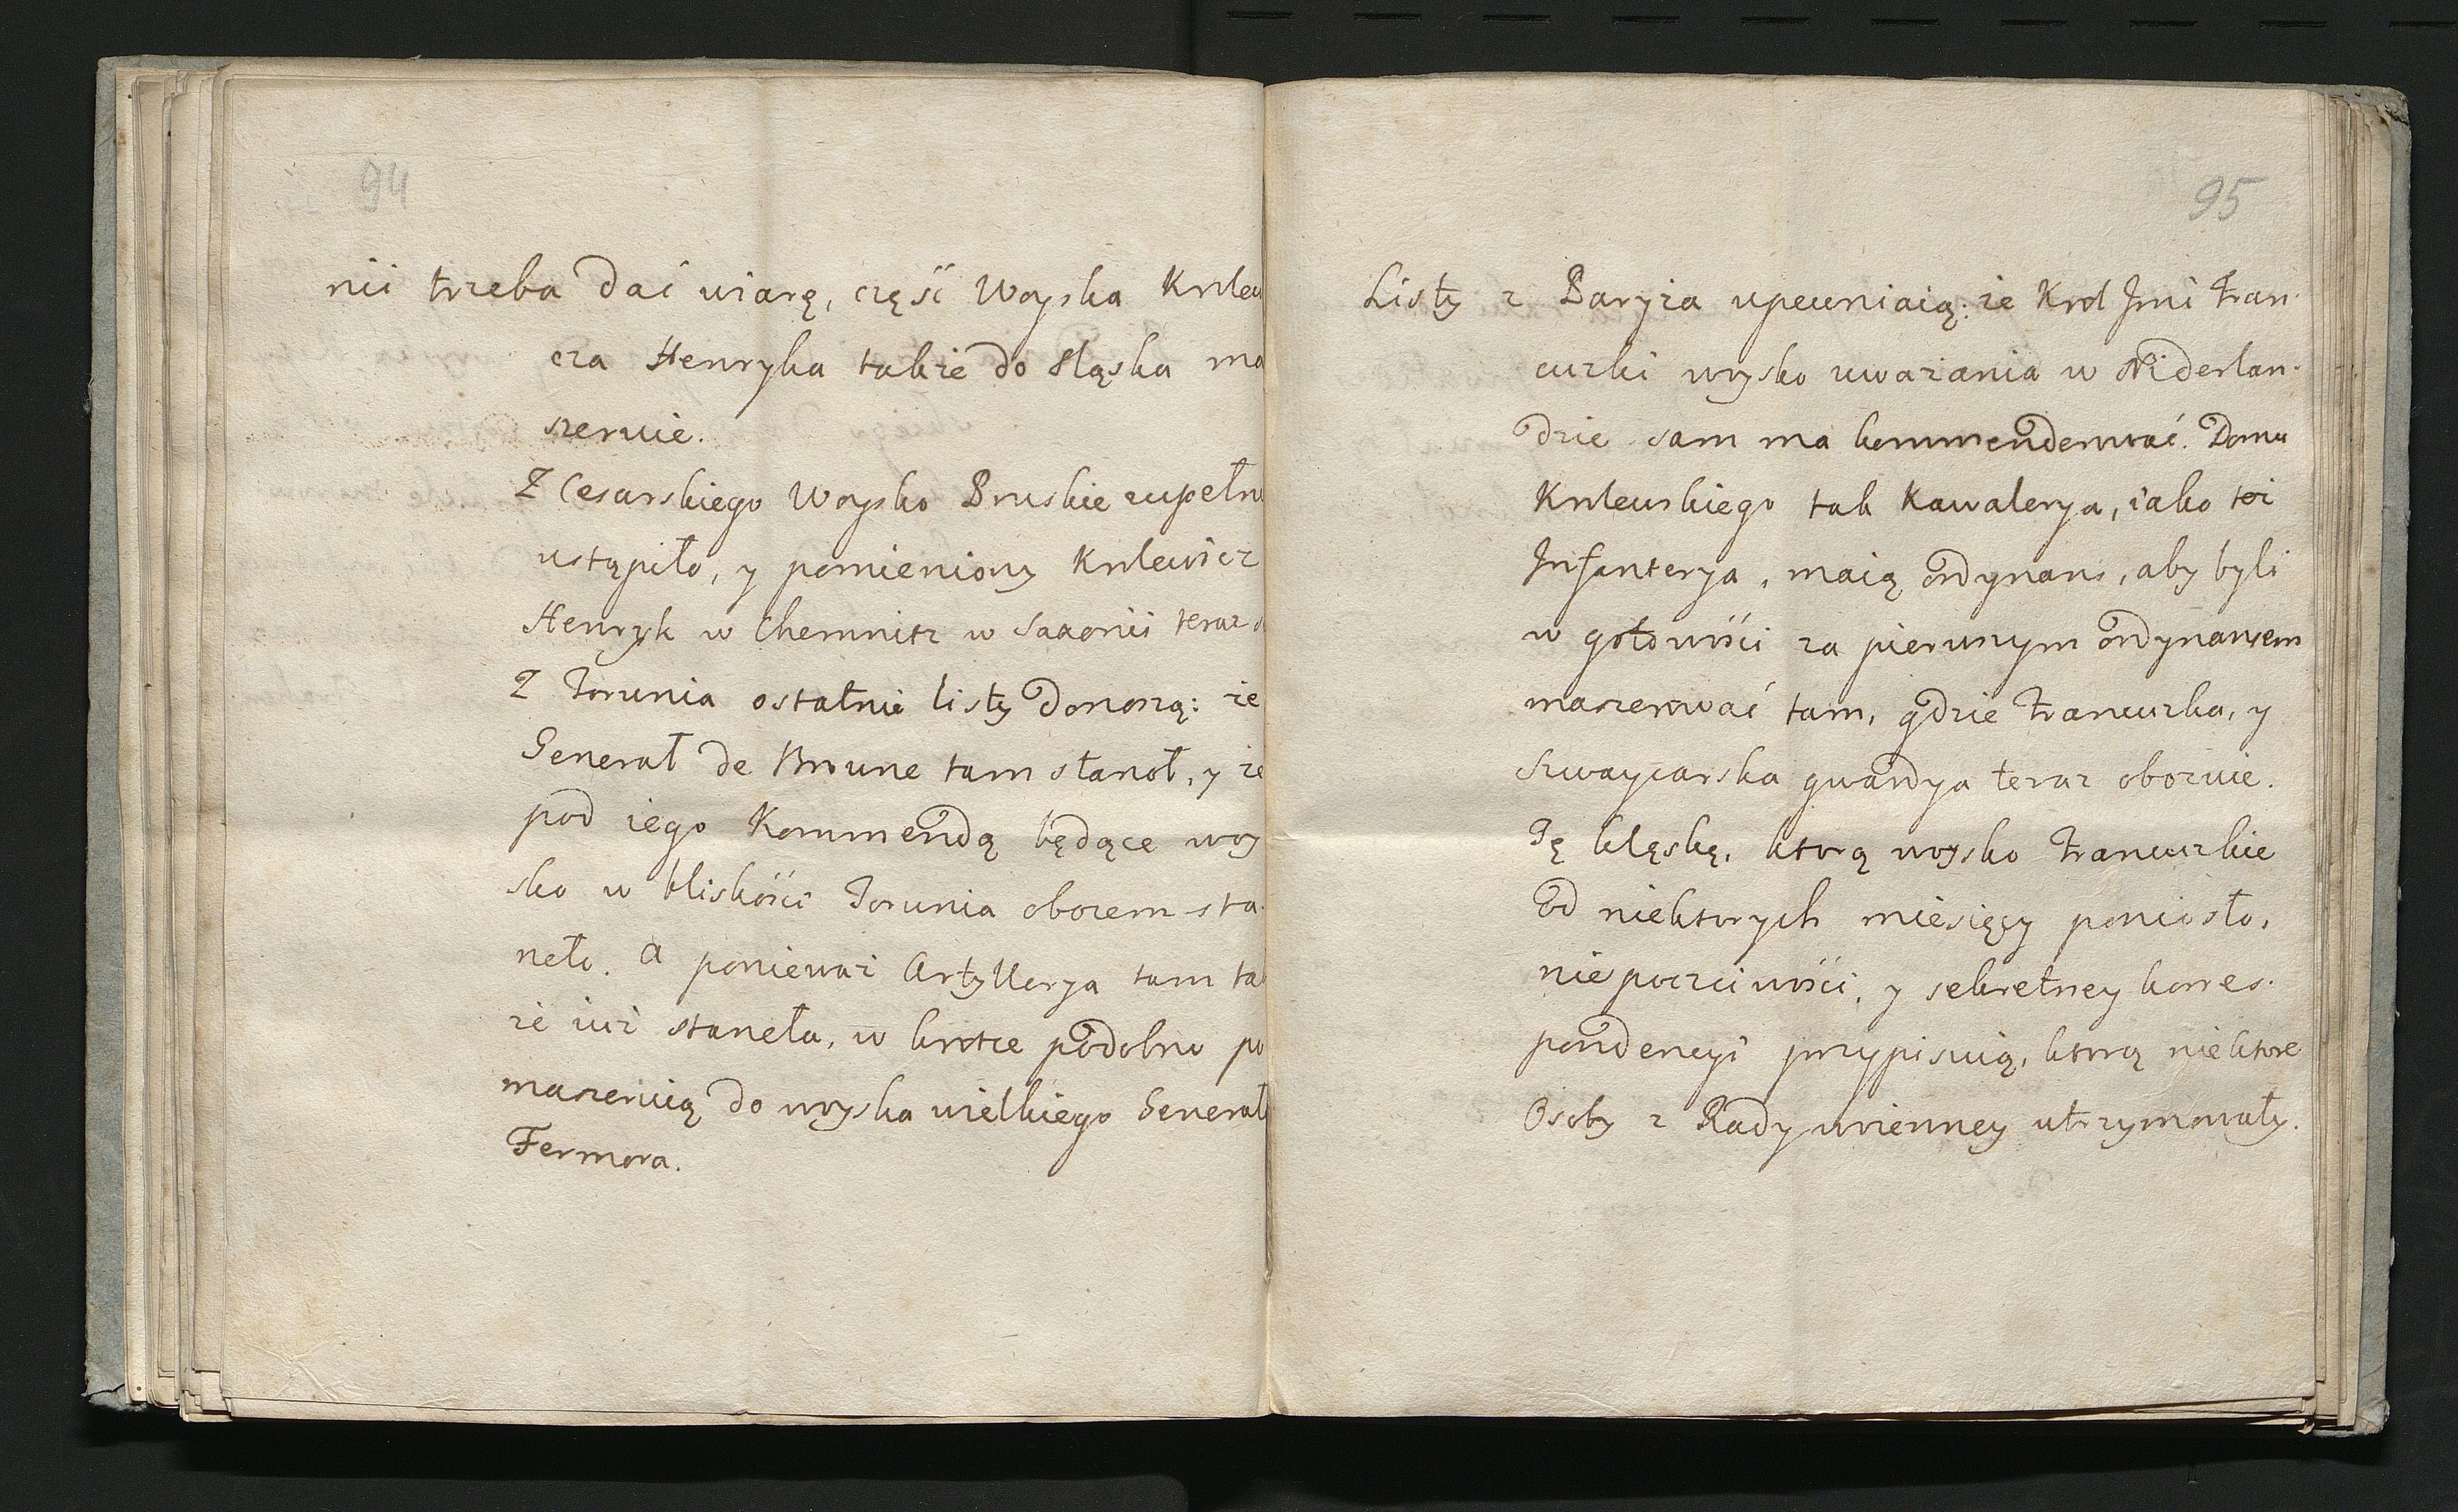 94
nii trzeba dać wiarę, część Woyska Krolew
cza Henryka także do Sląska ma
szeruie.
Z Cesarskiego Woysko Pruskie zupełn
ustąpiło, y pomieniony Krolewicz
Henryk w Chemnitz w Saxonii teraz
Z Torunia ostatnie listy donoszą: że
Generał de Broune tam stanoł, y że
pod iego Kommendą będące woy
sko w bliskości Torunia obozem sta-
neło. A ponieważ Artyllerya tam ta
że iuż staneła, w krotce podobno po
maszeruią do woyska wielkiego Generał
Fermora.
95
Listy z Paryża upewniaią: że Krol Jmć Fran-
cuzki woysko uważania w Niderlan-
dzie sam ma kommenderować. Domu
Krolewskiego tak Kawalerya, iako też
Infanterya, maią ordynans, aby byli
w gotowości za pierwszym ordynansem
maszerować tam, gdzie Francuzka, y
Szwaycarska gwardya teraz obozuie.
Tę klęskę, ktorą woysko Francuzkie
Od niektorych miesięcy poniosło,
niepoczciwości, y sekretney korres-
pondencyi przypisuią, ktorą niektore
Osoby z Rady woienney utrzymowały.